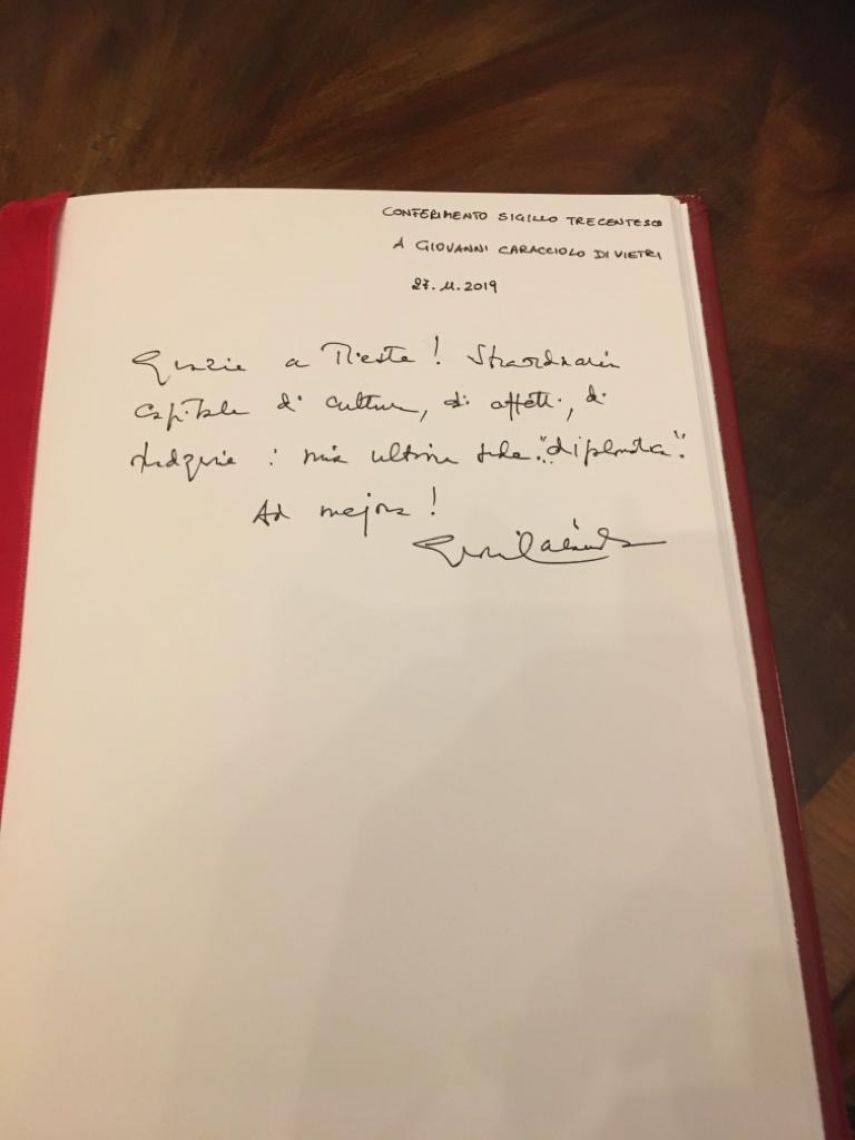 CONFERIMENTO SIGILLO TRECENTESCO
A GIOVANNI CARACCIOLO DI VIETRI
27.11.2019
Grazie a Trieste! Straordinaria
capitale di cultura, di affetti, di
: mia ultima sede "diplomatica".
Ad majora!